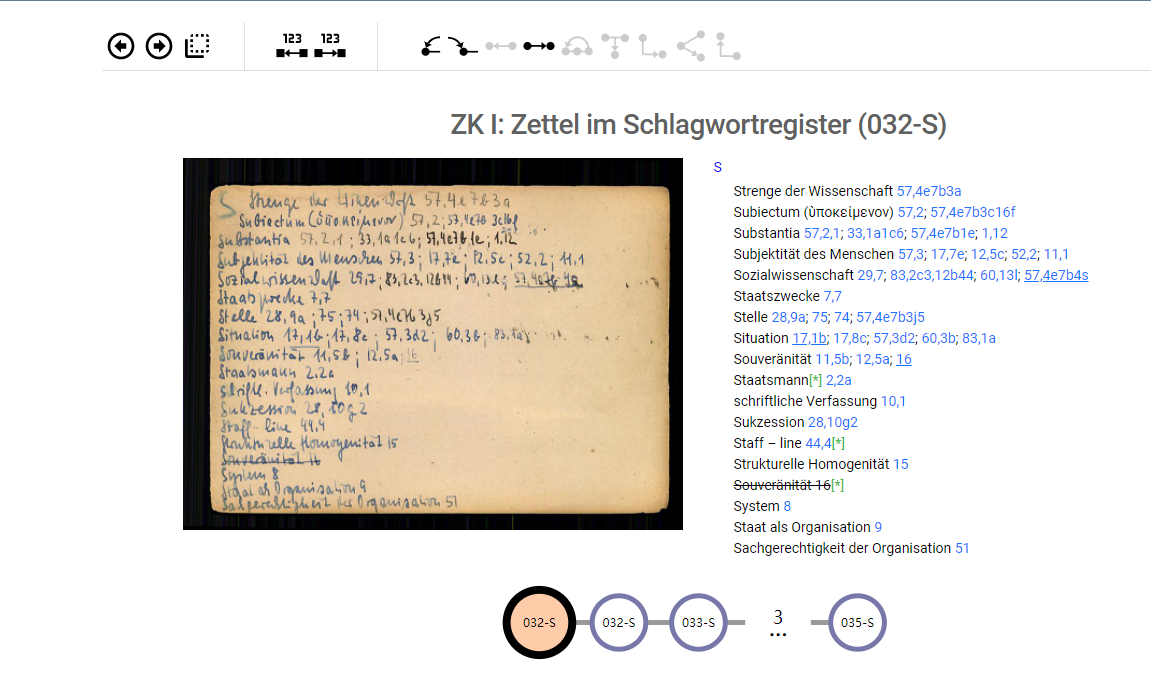 123 123
ZK I: Zettel im Schlagwortregister (032-S)
S Strenge der Wissenschaft 57,4e7b3a
Subiectum (ὑποκείμενον) 57,2; 57,4e7b 3c16f
Substantia 57,2,1; 33,1a1c6; 57,4e7b1e; 1,12
Subjektität des Menschen 57,3; 17,7e; 12,5c; 52,2; 11,1
Sozialwissenschaft 29,7; 83,2c3,12b44; 60,13l; 57,4e7b 4s
Staatszwecke 7,7
Stelle 28,9a; 75; 74; 57,4e7b 3j5
Situation 17,1b; 17,8c; 57,3d2; 60,3b; 83,1a
Souveränität 11,5b; 12,5a; 16
Staatsmann 2,2a
schriftl. Verfassung 10,1
Sukzession 28,10g2
Staff-line 44,4
Strukturelle Homogenität 15
Souveränität 16
System 8
Staat als Organisation 9
Sachgerechtigkeit der Organisation 51
S
Strenge der Wissenschaft 57,4e7b3a
Subiectum (ὑποκείμενον) 57,2; 57,4e7b3c16f
Substantia 57,2,1; 33,1a1c6; 57,4e7b1e; 1,12
Subjektität des Menschen 57,3; 17,7e; 12,5c; 52,2; 11,1
Sozialwissenschaft 29,7; 83,2c3,12b44; 60,13l; 57,4e7b4s
Staatszwecke 7,7
Stelle 28,9a; 75; 74; 57,4e7b3j5
Situation 17,1b; 17,8c; 57,3d2; 60,3b; 83,1a
Souveränität 11,5b; 12,5a; 16
Staatsmann[*] 2,2a
schriftliche Verfassung 10,1
Sukzession 28,10g2
Staff – line 44,4[*]
Strukturelle Homogenität 15
Souveränität 16[*]
System 8
Staat als Organisation 9
Sachgerechtigkeit der Organisation 51
032-S 032-S 033-S 3 ... 035-S